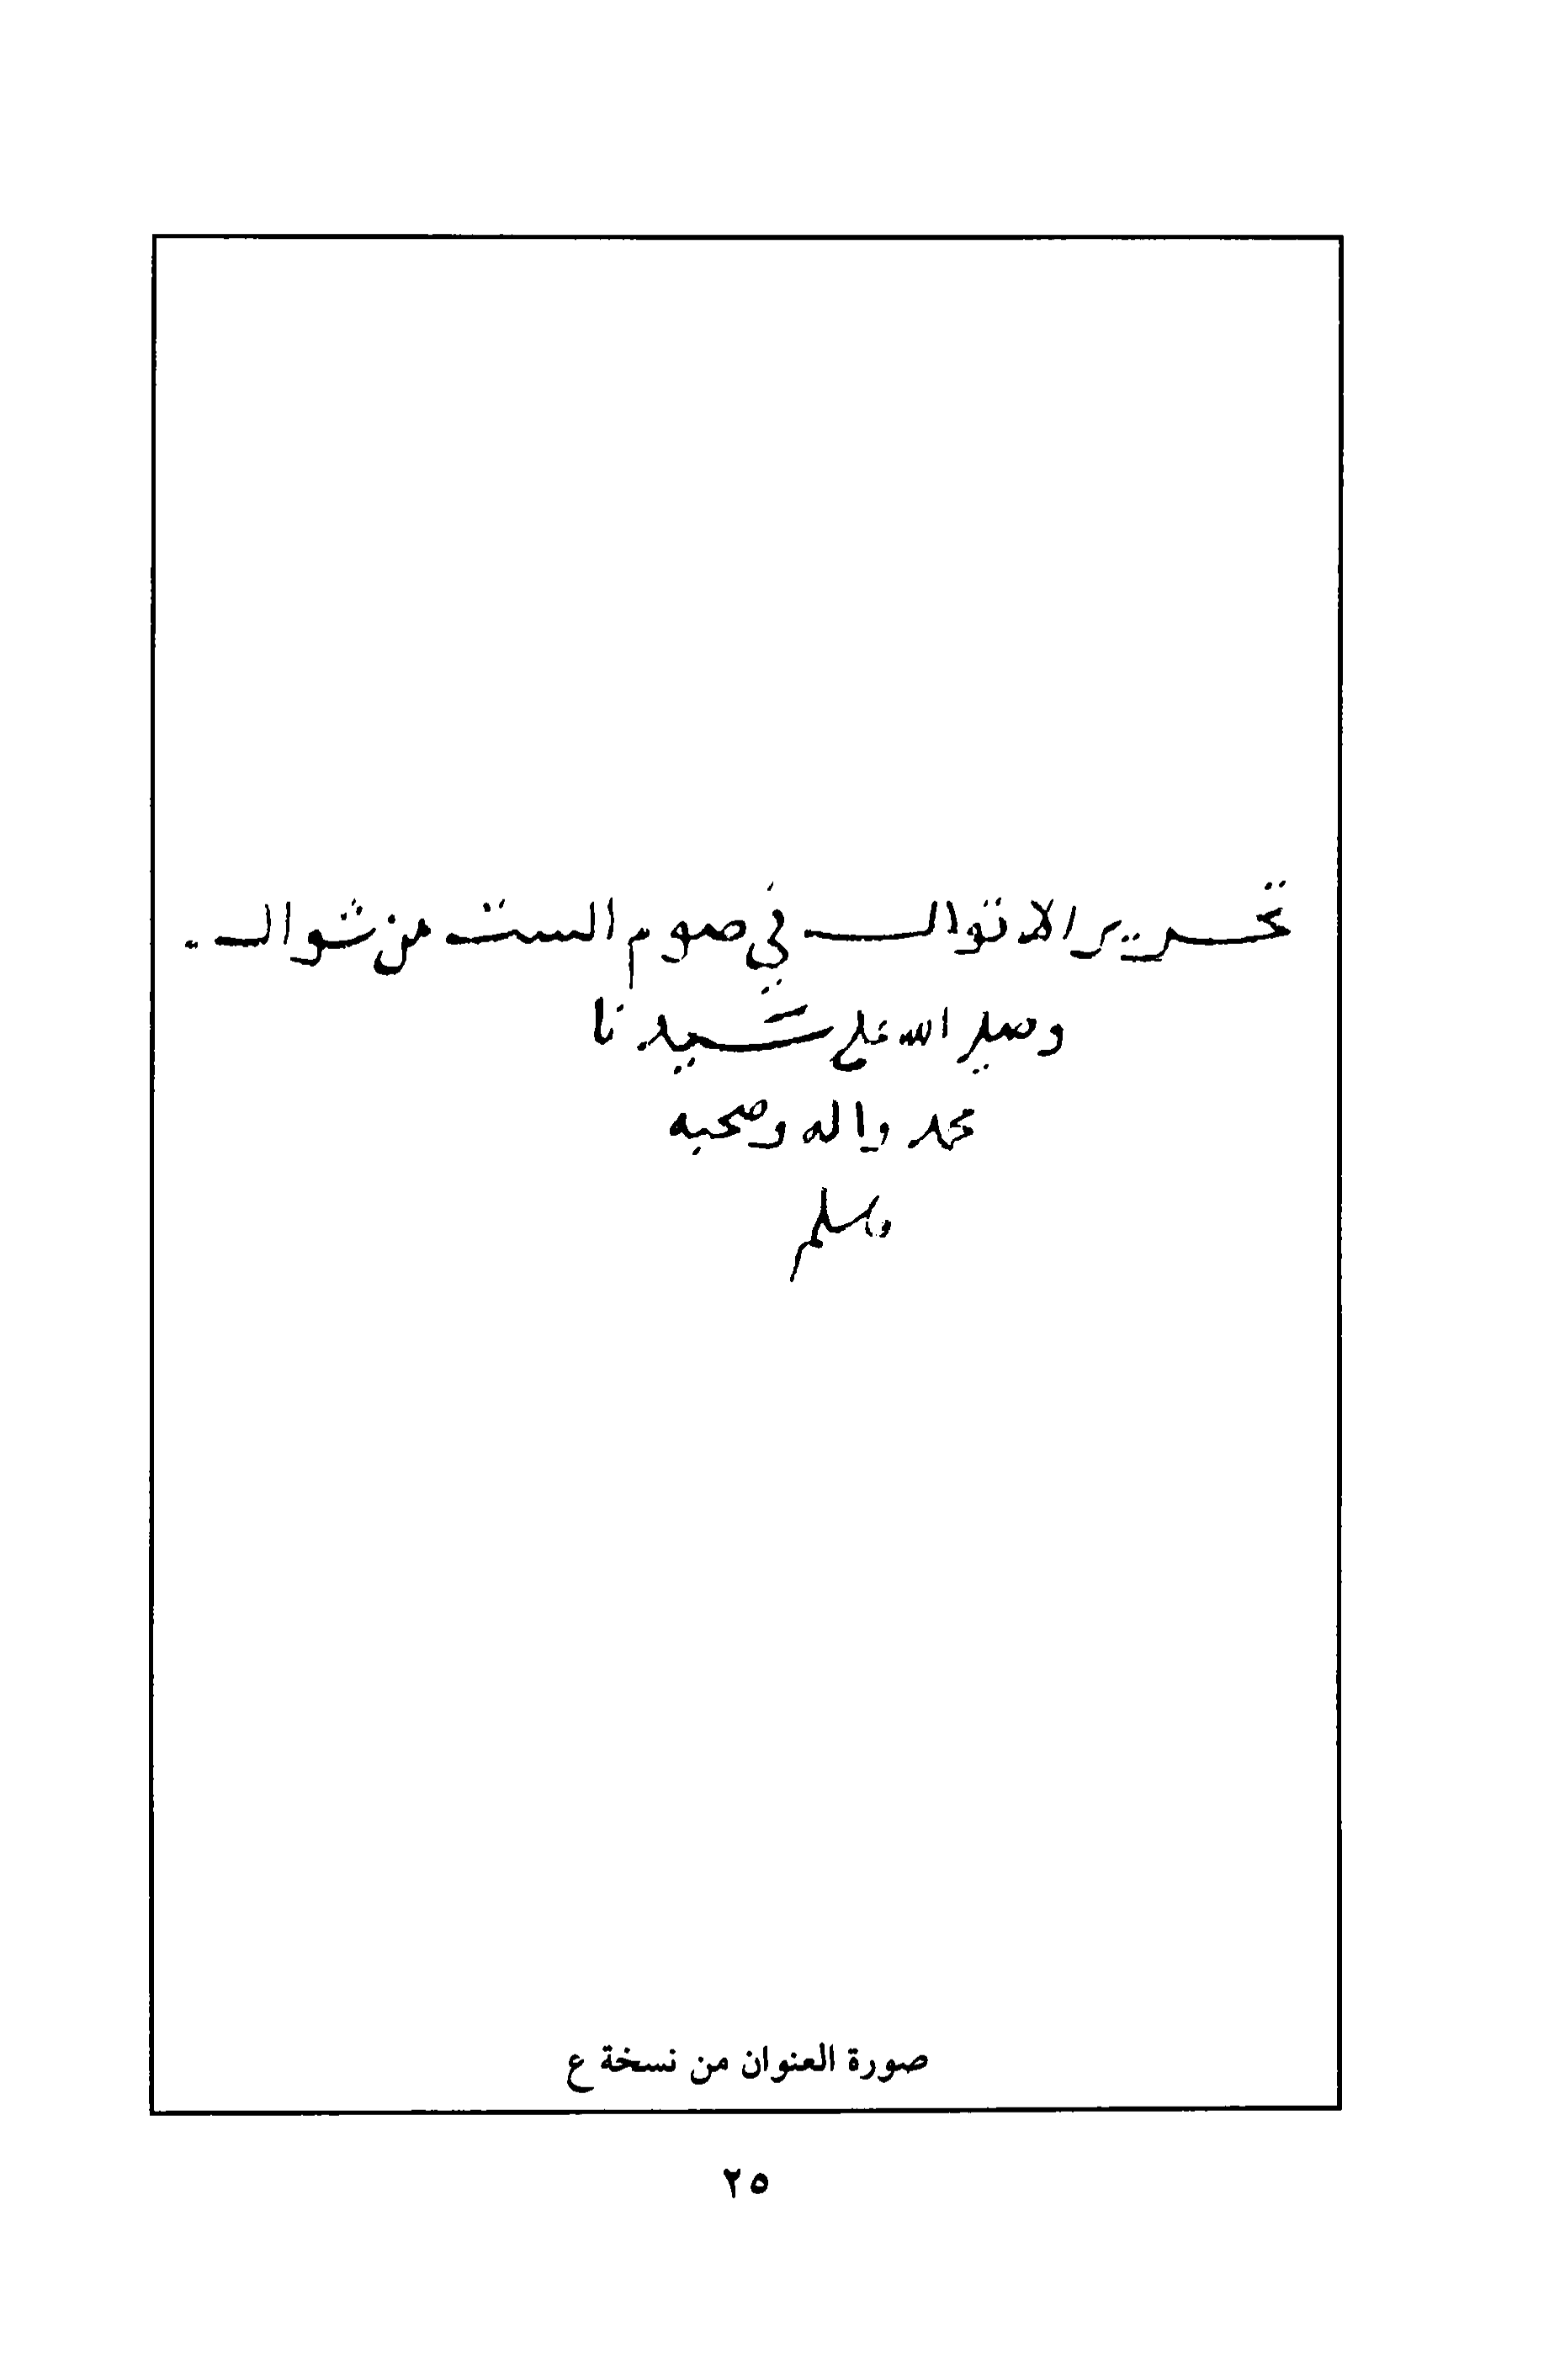 تحرير الاقوال في صوم الست من شوال
وصلى الله على سيدنا
محمد واله وصحبه
وسلم
صورة العنوان من نسخة ع
٢٥